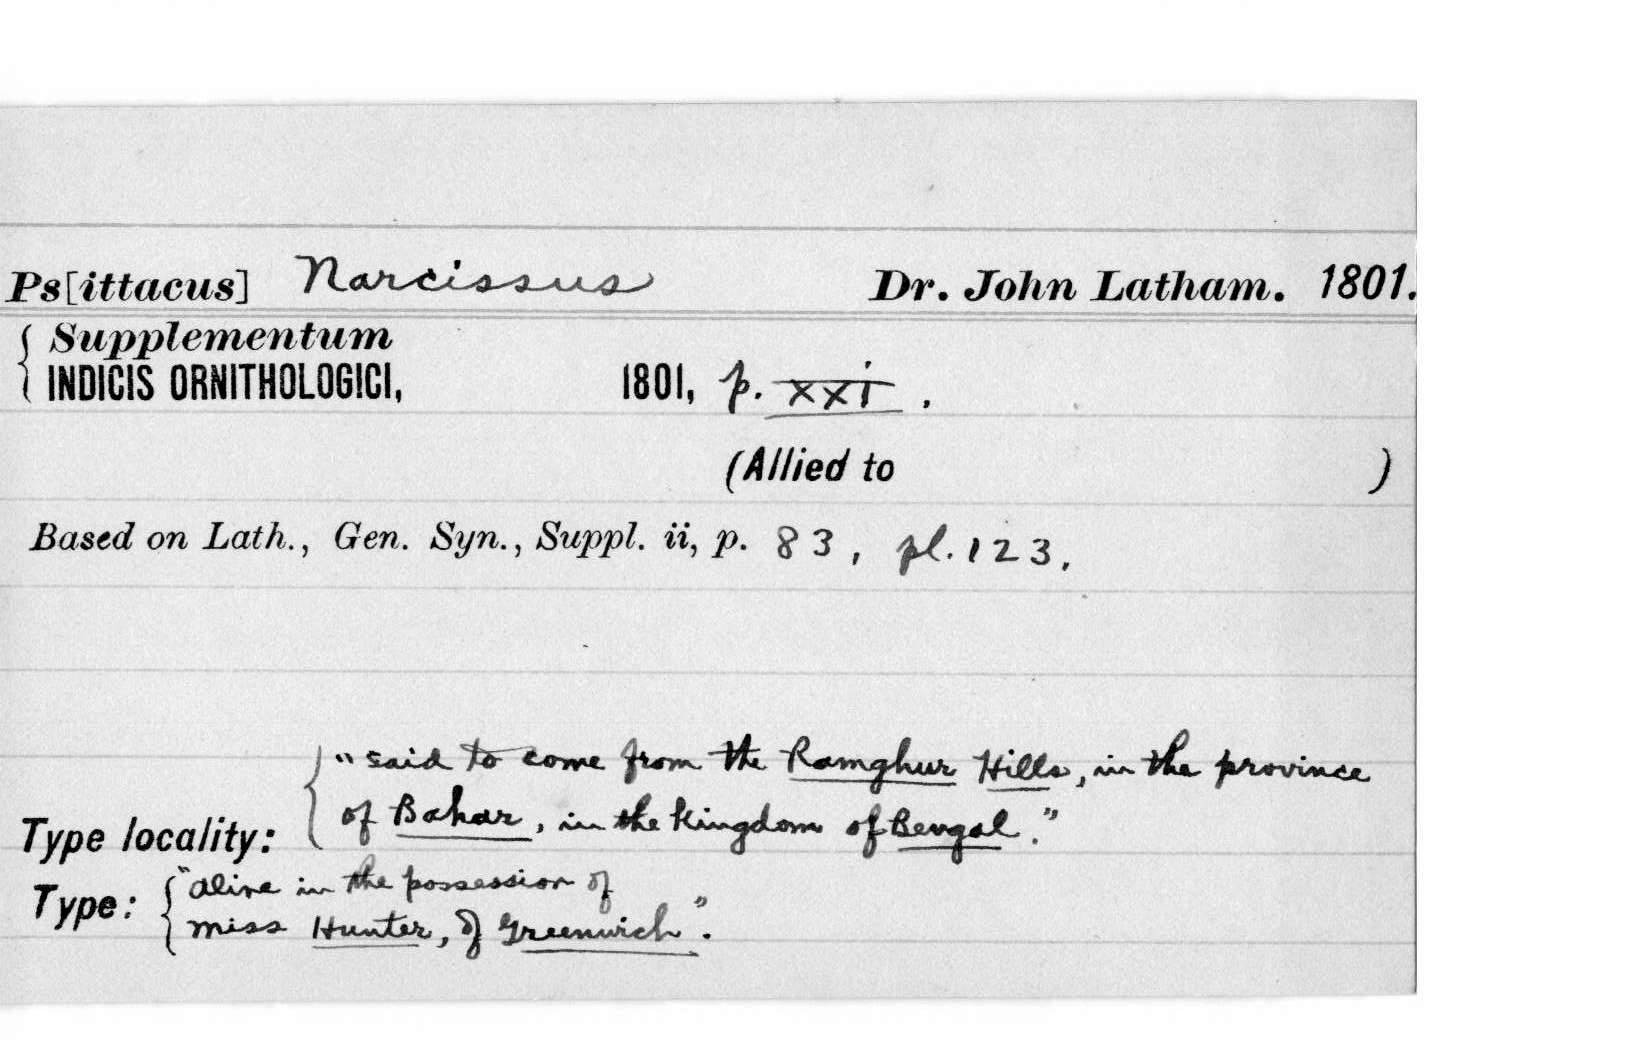 Ps[ittacus] Narcissus Dr. John Latham. 1801.
Supplementum
INDICIS ORNITHOLOGICI, 1801, p. xxi .
(Allied to )
Based on Lath., Gen. Syn., Suppl. ii, p. 83, pl. 123.
"said to come from the Ramghur Hills, in the province
of Bahar, in the Kingdom of Bengal."
Type locality:
"alive in the possession of
Type:
miss Hunter, of Greenwich".